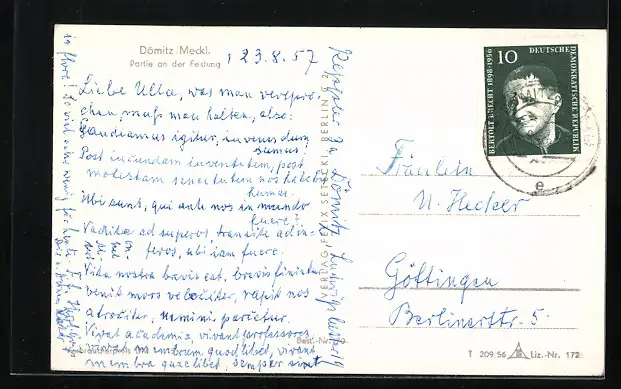 Dömitz/Meckl.
Partie an der Festung
, 23.8.57
Liebe Ulla, was man verspro-
chen, muß man halten, also:
Gaudiamus igitur, iuvenes dum
sumus!
Post iucundam iuventutem, post
molestam senectutem nos habebit
humus.
Ubi sunt, qui ante nos in mundo
fuere?
Vadite ad superos transite ad in-
feros, ubi iam fuere.
Vita nostra brevis est, brevi finietur
venit mors velociter, rapit nos
atrociter, nemini parcetur.
Vivat academia, vivant professores
vivat membrum quodlibet, vivant
membra quaelibet, semper sint
in flore!
VERLAG FELIX SETECKI BERLIN
Dömitz
Best.-Nr.
10
DEUTSCHE DEMOKRATISCHE REPUBLIK
BERTOLT BRECHT 1898-1956
e
Fräulein
U. Hecker
Göttingen
Berlinerstr. 5
T 209 56 Liz.-Nr. 172